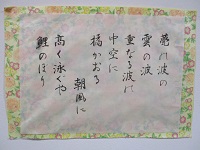 甍は波の
雲の波
重なる波は
中空に
橘かおる
朝風に
高く泳ぐや
鯉のぼり